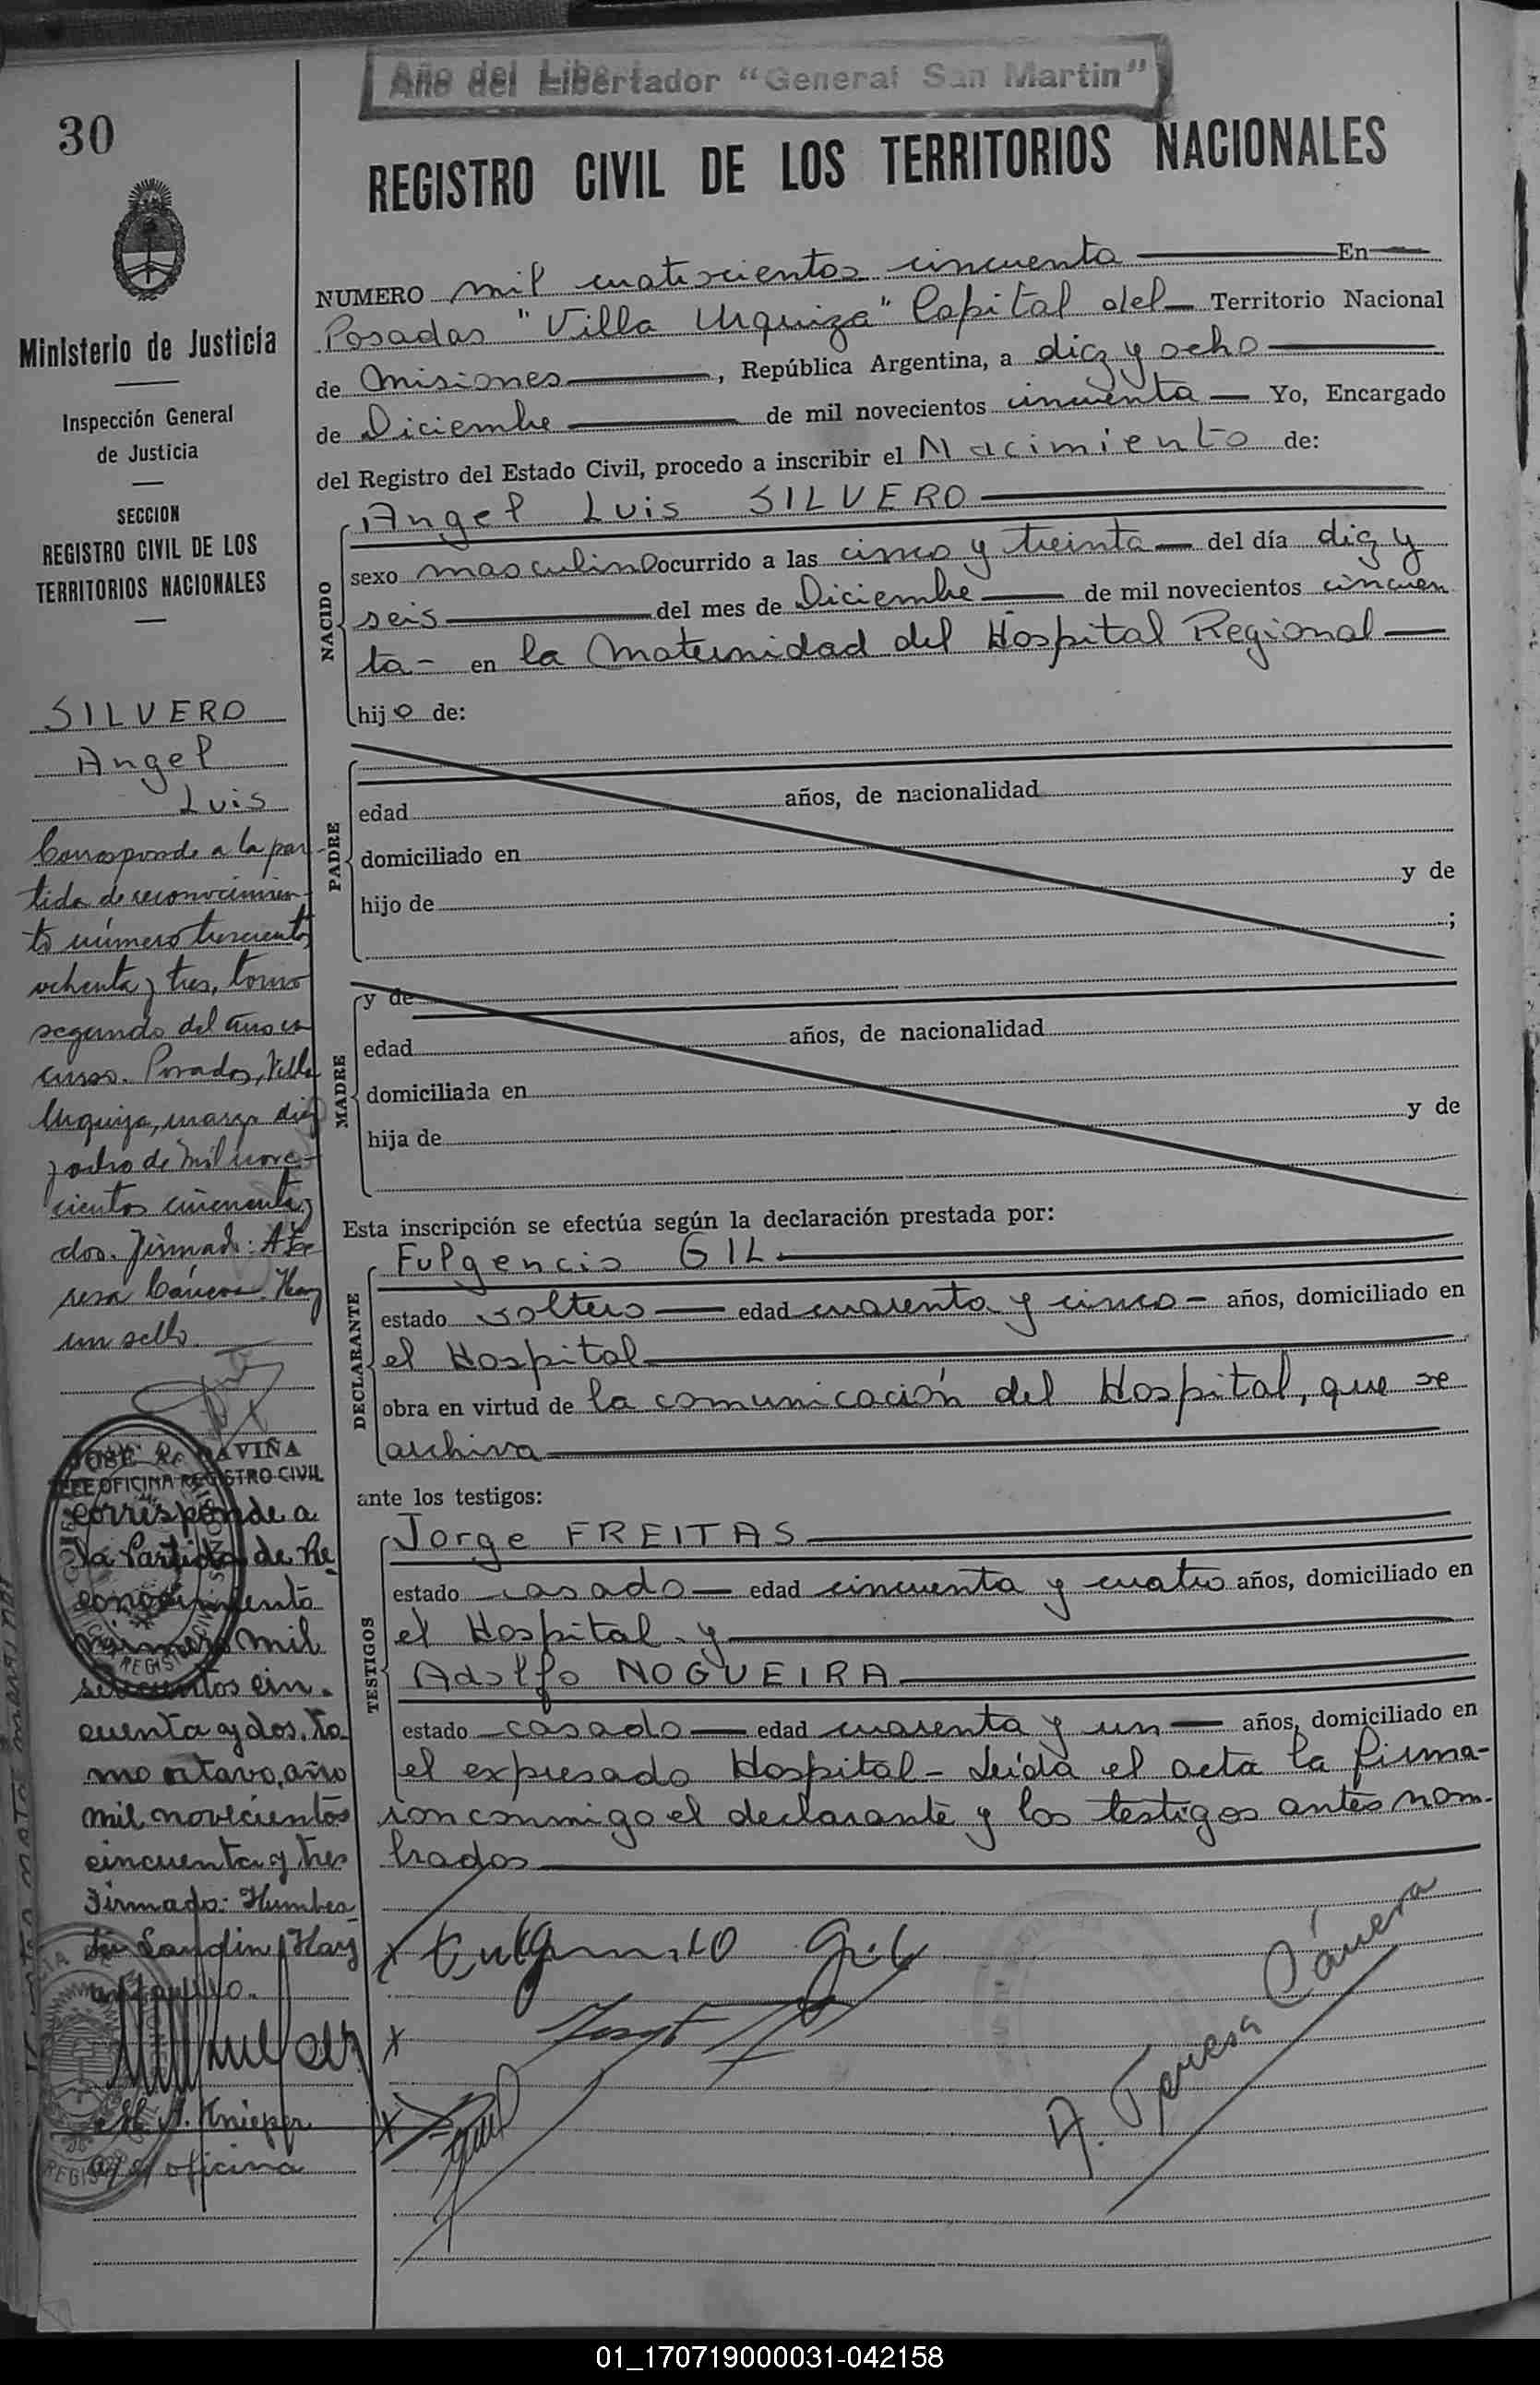 Año del Libertador "General San Martin"
30
REGISTRO CIVIL DE LOS TERRITORIOS NACIONALES
Ministerio de Justicia
Inspección General
de Justicia
SECCION
REGISTRO CIVIL DE LOS
TERRITORIOS NACIONALES
NUMERO mil cuatrocientos cincuenta En
Posadas "Villa Urquiza" Capital del Territorio Nacional
de Misiones, República Argentina, a diez y ocho
de Diciembre de mil novecientos cincuenta Yo, Encargado
del Registro del Estado Civil, procedo a inscribir el Nacimiento de:
NACIDO
Angel Luis SILVERO
sexo masculino ocurrido a las cinco y treinta del día diez y
seis del mes de Diciembre de mil novecientos cincuen
ta- en la Maternidad del Hospital Regional
hijo de:
PADRE
edad años, de nacionalidad
domiciliado en
hijo de y de
;
MADRE
y de
edad años, de nacionalidad
domiciliada en
hija de y de
Esta inscripción se efectúa según la declaración prestada por:
DECLARANTE
Fulgencio GIL
estado soltero edad cuarenta y cinco - años, domiciliado en
el Hospital
obra en virtud de la comunicación del Hospital, que se
archiva
ante los testigos:
TESTIGOS
Jorge FREITAS
estado casado edad cincuenta y cuatro años, domiciliado en
el Hospital y
Adolfo NOGUEIRA
estado casado edad cuarenta y un años, domiciliado en
el expresado Hospital - Leída el acta la firma-
ron conmigo el declarante y los testigos antes nom-
brados
Fulgencio Gil
A. Teresa Cánera
SILVERO
Angel
Luis
Corresponde a la par-
tida de reconocimien-
to número trescientos
ochenta y tres, tomo
segundo del año en
curso. Posadas, Villa
Urquiza, marzo diez
y ocho de mil nove-
cientos cincuenta y
dos. Firmado: A. Te
resa Cánera. Hay
un sello.
JOSE R. GAVIÑA
JEFE OFICINA REGISTRO CIVIL
Corresponde a
la Partida de Re
conocimiento
número mil
setecientos cin-
cuenta y dos, to
mo octavo, año
mil novecientos
cincuenta y tres
Firmado: Humber-
to Landin, Hay
un sello.
M. A. Knieper
a/c oficina
01_170719000031-042158